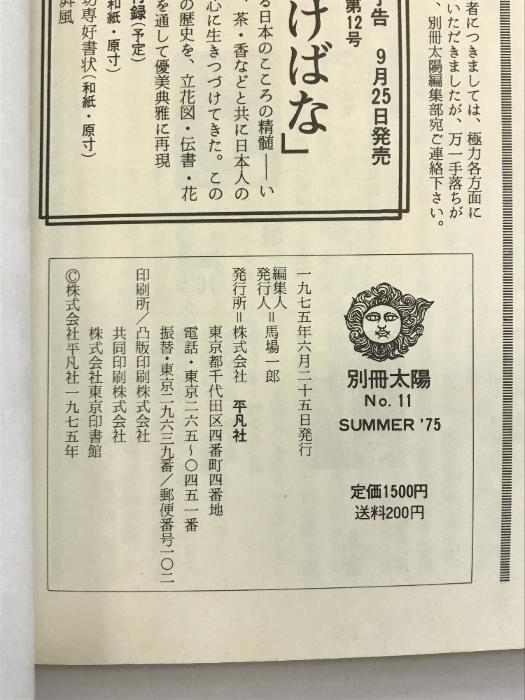 者につきましては、極力各方面に
いただきましたが、万一手落ちが
、別冊太陽編集部宛ご連絡下さい。
予告 9月25日発売
第12号
けばな」
る日本のこころの精髄――い
、茶・香などと共に日本人の
心に生きつづけてきた。この
の歴史を、立花図・伝書・花
を通して優美典雅に再現
付録(予定)
(和紙・原寸)
坊専好書状(和紙・原寸)
屛風
別冊太陽
No. 11
SUMMER '75
定価1500円
送料200円
一九七五年六月二十五日発行
編集人
発行人=馬場一郎
発行所=株式会社 平凡社
東京都千代田区四番町四番地
電話・東京二六五〜〇四五一番
振替・東京二九六三九番/郵便番号一〇二
印刷所/凸版印刷株式会社
共同印刷株式会社
株式会社東京印書館
©株式会社平凡社一九七五年